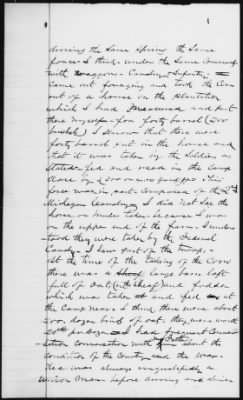 during the same Spring the same
force I think under the same Command
with waggons - Cavalry & Infantry
came out foraging and took the Corn
out of a house on the plantation
which I had measured and put
there myself - for forty barrels (200
bushels) I know that there were
forty barrels put in the house and
that it was taken by the Soldiers as
Stated - fed and used in the Camp
close by &
force was in part composed of the 2nd
Michigan Cavalry I did not see the
horse or mules taken because I was
on the upper end of the farm. I under-
stood they were taken by the Federal
Cavalry - I saw part of the troop.
At the time of the taking of the Corn
there was a large barn left
full of Oats (in sheaf) and fodder
which was taken and fed at
the Camp near. I think there were about
dozen bind of oat. they were worth
pr Dozen - I had frequent Conver-
sation with about the
condition of the Country and the War.
He was always unqualifiedly a
Union Man before during and since